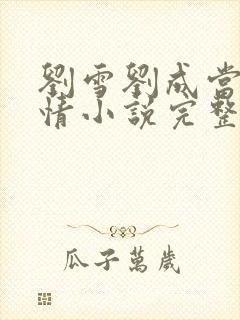 劉雪劉成當
情小說完整
瓜子萬歲